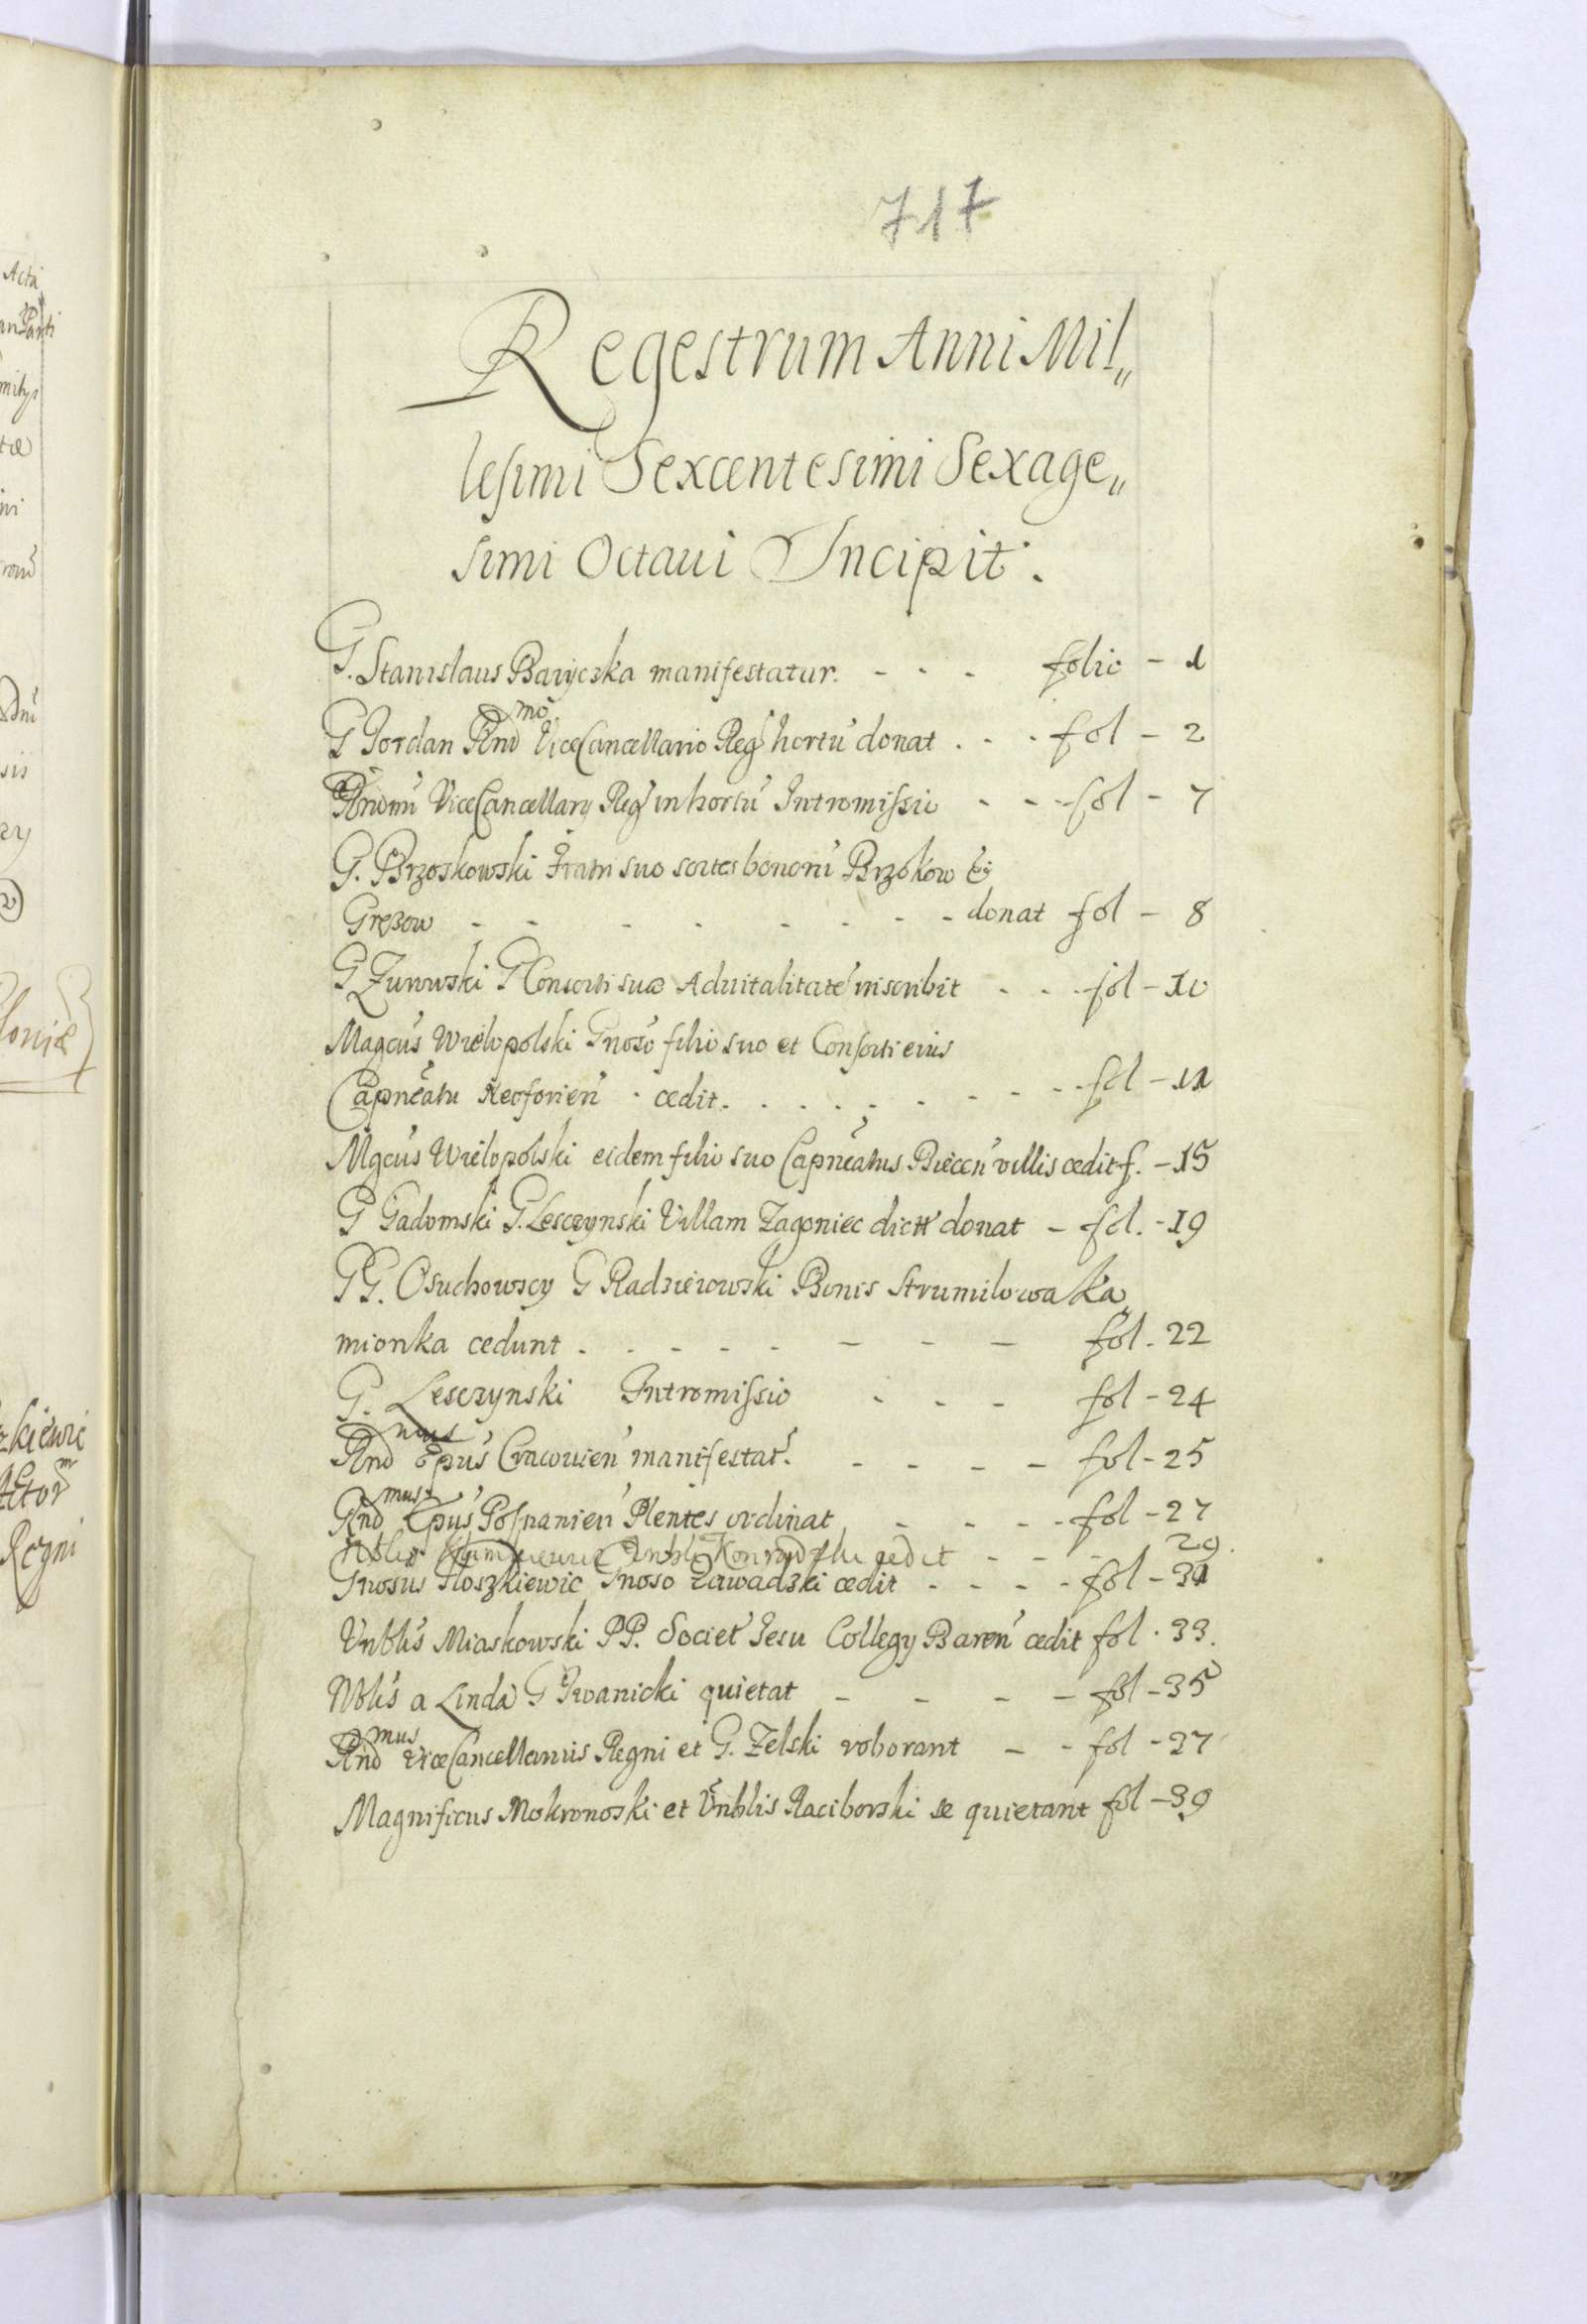 717
Regestrum Anni Mil„
lesimi Sexcentesimi Sexage„
simi Octaui Incipit.
G. Stanislaus Baryczka manifestatur. - - - folio - 1
G Jordan Rnd mo ViceCancellario Reg hortu donat . . . fol - 2
ViceCancellarij Reg in hortu Intromissio - - - fol - 7
G. Brzoskowski Fratri suo sortes bonoru Brzokow &
Gręzow - - - - - - - - donat fol - 8
G Zurowski G Consorti suæ Aduitalitate inscribit - - - fol - 10
Magcus Wielopolski Gnoso filio suo et Consorti eius
Capneatu Neoforien cedit. . . . . . - - - fol - 11
Mgcus Wielopolski eidem filio suo Capneatus Biecen villis cedit f. - 15
G Gadomski G. Lesczynski Villam Zagoniec dict donat - fol. - 19
GG. Osuchowscy G Radzieiowski Bonis Strumilowa Ka„
mionka cedunt . . - - - - - - fol. 22
G. Lesczynski Intromissio - - - fol - 24
Rnd mus Epus Cracouien manifestat. - - - - fol - 25
Rnd mus Epus Posnanien Plentes ordinat - - - - fol - 27
cedit - - - 29.
Gnosus Floszkiewic Gnoso Zawadzki cedit - - - - fol - 31
Vnblis Miaskowski PP. Societ Jesu Collegij Baren cedit fol . 33.
Nblis a Linda G Iwanicki quietat - - - - fol - 35
Rnd mus ViceCancellarius Regni et G. Zelski roborant - - fol - 37
Magnificus Mokronoski et Vnblis Raciborski se quietant fol - 39
Acta
zkiewic
Regni